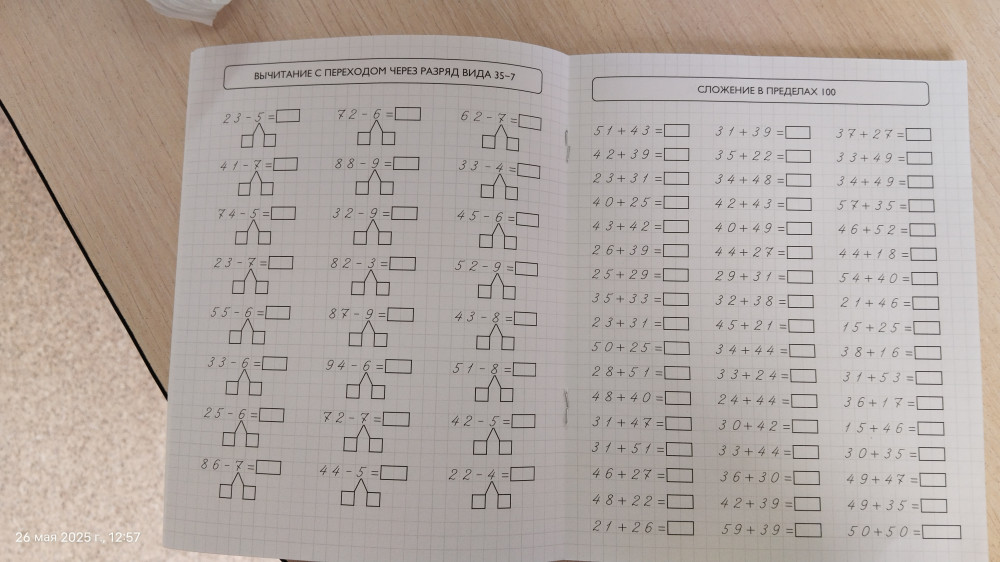 ВЫЧИТАНИЕ С ПЕРЕХОДОМ ЧЕРЕЗ РАЗРЯД ВИДА 35-7
23-5= 72-6= 62-7=
41-7= 88-9= 33-4=
74-5= 32-9= 45-6=
23-7= 82-3= 52-9=
55-6= 87-9= 43-8=
33-6= 94-6= 51-8=
25-6= 72-7= 42-5=
86-7= 44-5= 22-4=
СЛОЖЕНИЕ В ПРЕДЕЛАХ 100
51+43= 31+39= 37+27=
42+39= 35+22= 33+49=
23+31= 34+48= 34+49=
40+25= 42+43= 57+35=
43+42= 40+49= 46+52=
26+39= 44+27= 44+18=
25+29= 29+31= 54+40=
35+33= 32+38= 21+46=
23+31= 45+21= 15+25=
50+25= 34+44= 38+16=
28+51= 33+24= 31+53=
48+40= 24+44= 36+17=
31+47= 30+42= 15+46=
31+51= 33+44= 30+35=
46+27= 36+30= 49+47=
48+22= 42+39= 49+35=
21+26= 59+39= 50+50=
26 мая 2025 г., 12:57